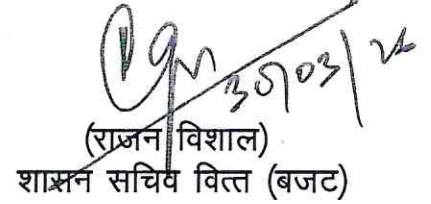 30/03/
(राजन विशाल)
शासन सचिव वित्त (बजट)